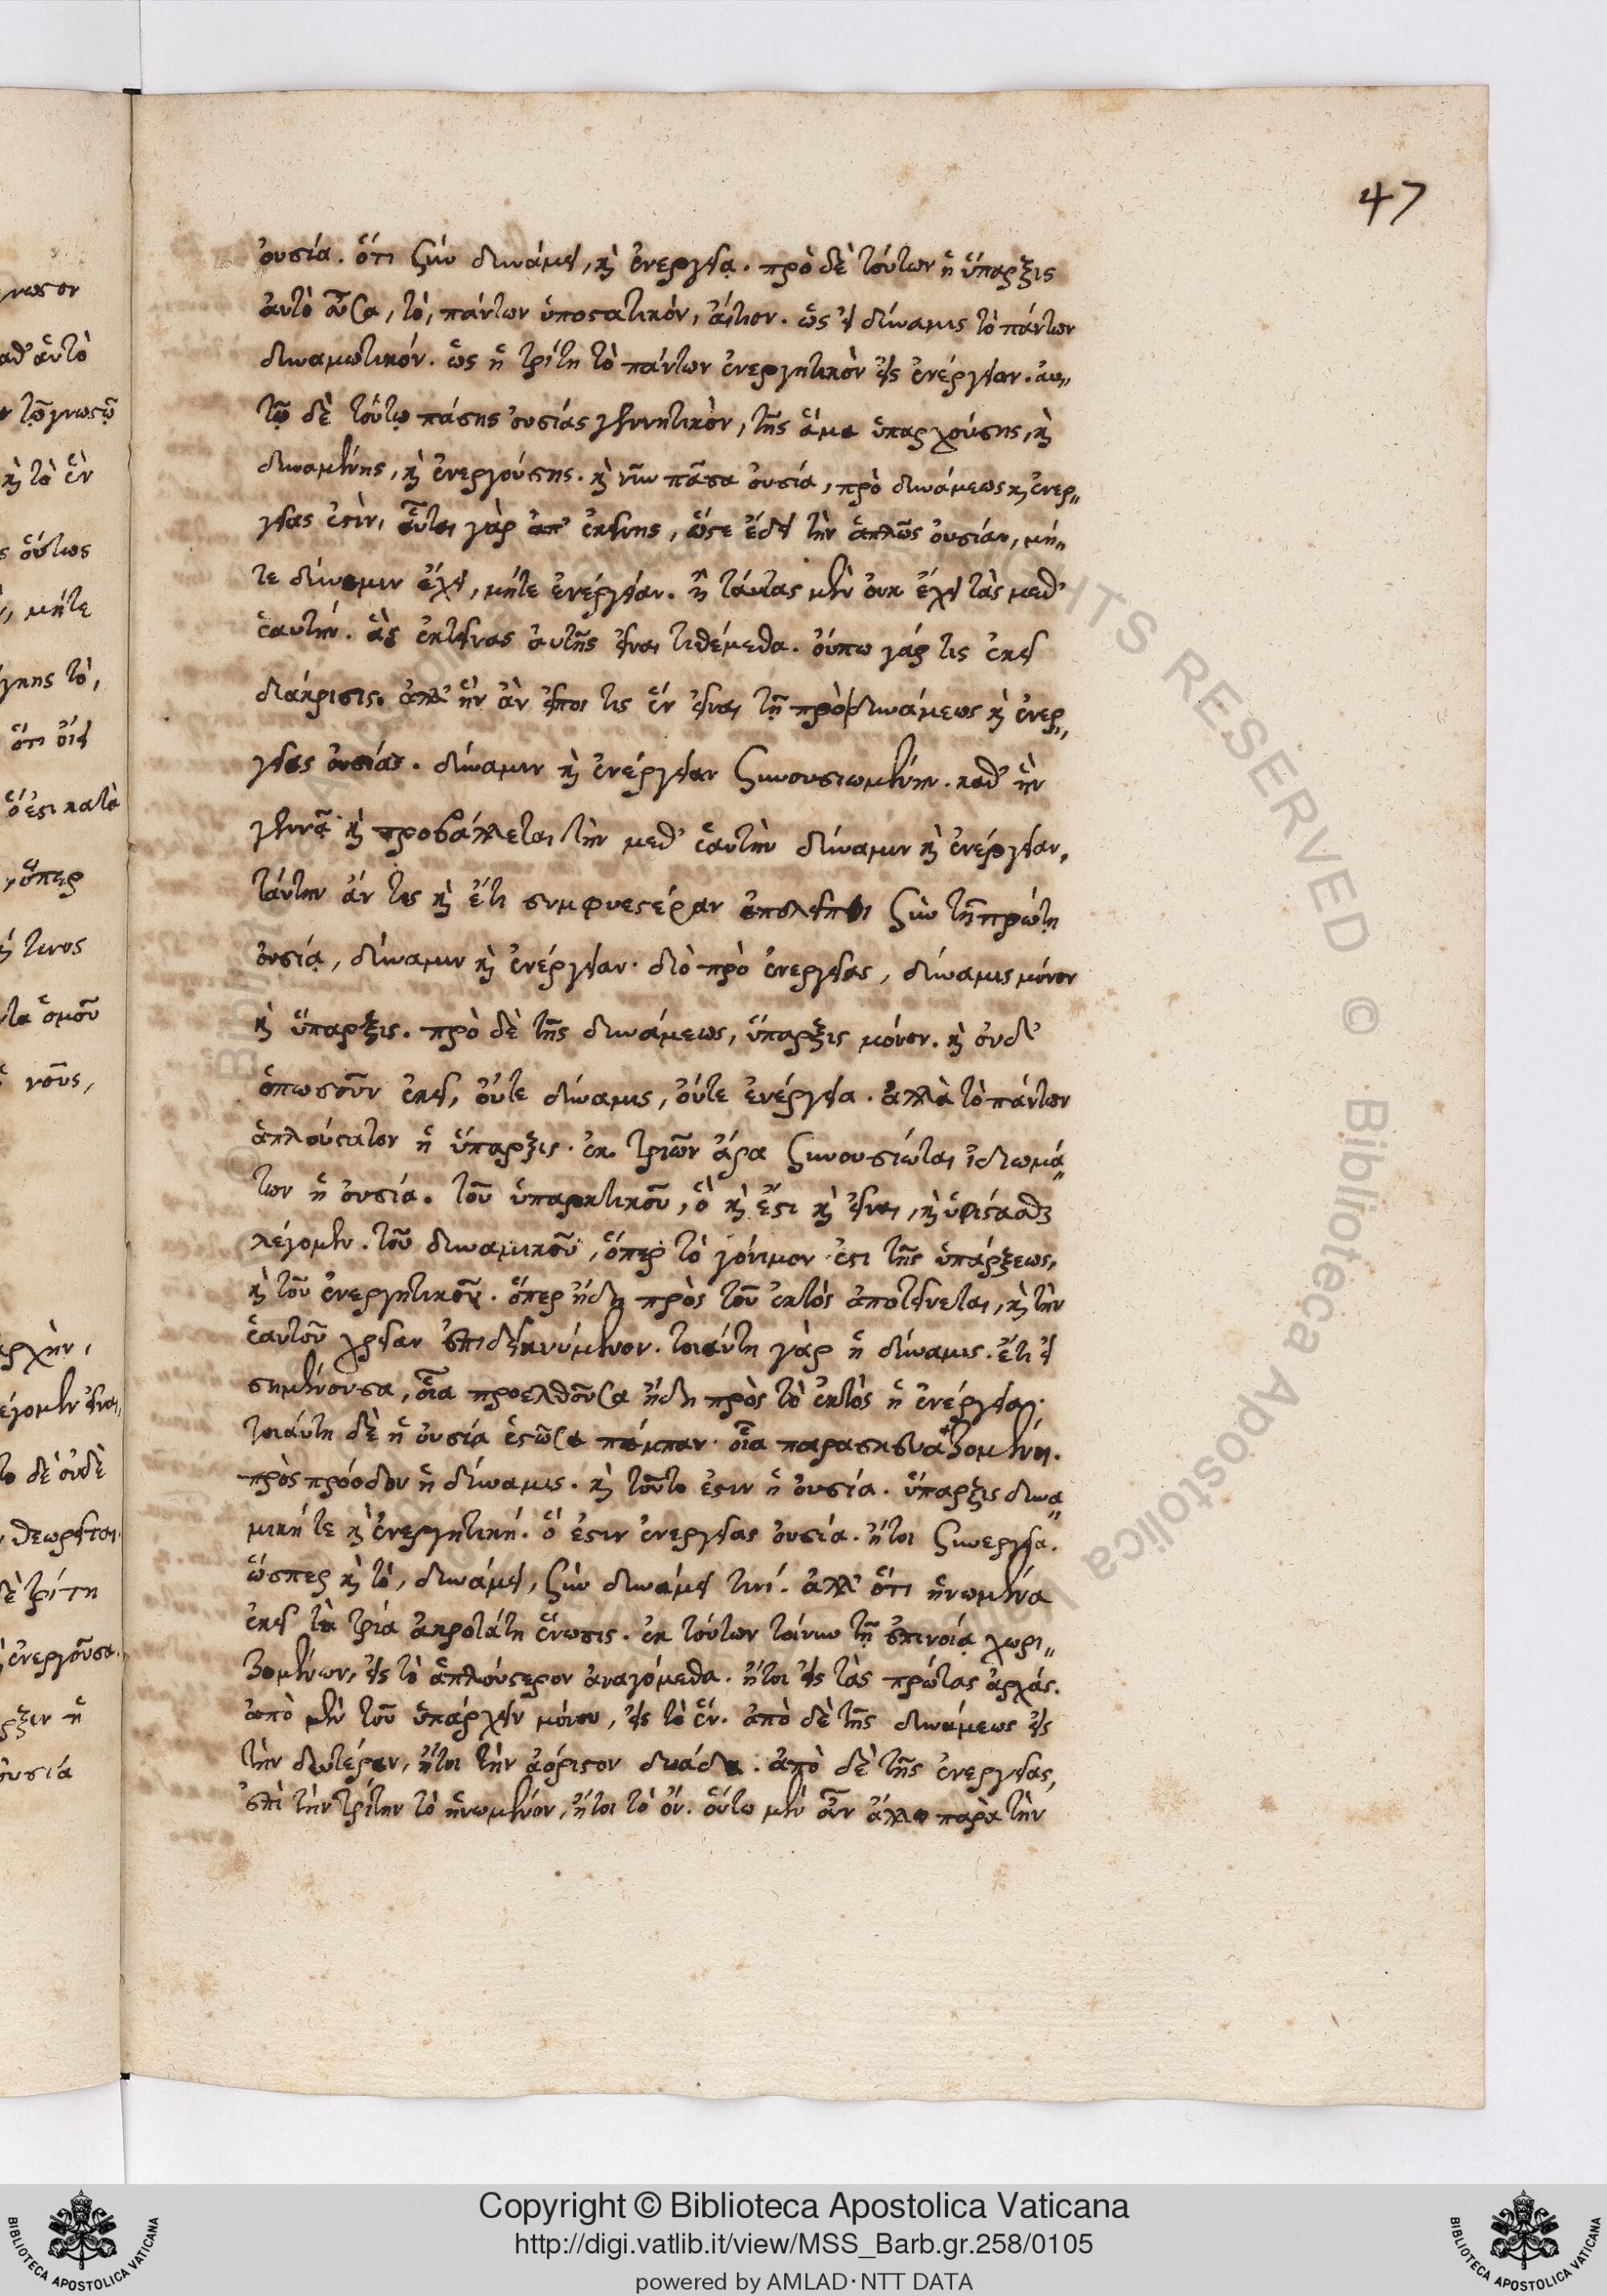 47
οὐσία. ὅτι ζὺν δυνάμει, καὶ ἐνεργείᾳ. πρὸ δὲ τούτων ἡ ὕπαρξις
αὐτὸ οὖσα, τὸ, πάντων ὑποστατικόν, αἴτιον. ὡς ἡ δύναμις τὸ πάντων
δυναμωτικόν. ὡς ἡ τρίτη τὸ πάντων ἐνεργητικὸν εἰς ἐνέργειαν. αὐ„
τῷ δὲ τούτῳ πάσης οὐσίας γεννητικὸν, τῆς ἅμα ὑπαρχούσης, καὶ
δυναμένης, καὶ ἐνεργούσης. καὶ νῦν πᾶσα οὐσία, πρὸ δυνάμεως καὶ ἐνερ„
γείας ἐστὶν, αὗται γὰρ ἀπ' ἐκείνης, ὥστε ἔδει τὴν ἁπλῶς οὐσίαν, μή„
τε δύναμιν ἔχει, μήτε ἐνέργειαν. ἢ ταύτας μὲν οὐκ ἔχει τὰς μεθ'
ἑαυτήν. ἃς ἐκτείνας αὐτῆς εἶναι τιθέμεθα. οὔπω γάρ τις ἐκεῖ
διάκρισις. ἀλλ' ἣν ἂν εἴποι τις ἓν εἶναι τῇ πρὸ δυνάμεως καὶ ἐνερ„
γείας οὐσίας. δύναμιν καὶ ἐνέργειαν ζυνουσιωμένην. καθ' ἣν
γεννᾷ καὶ προβάλλεται τὴν μεθ' ἑαυτὴν δύναμιν καὶ ἐνέργειαν,
ταύτην ἄν τις καὶ ἔτι συμφυεστέραν ἀπολείποι ζὺν τῇ πρώτῃ
οὐσίᾳ, δύναμιν καὶ ἐνέργειαν. διὸ πρὸ ἐνεργείας, δύναμις μόνον
καὶ ὕπαρξις. πρὸ δὲ τῆς δυνάμεως, ὕπαρξις μόνον. καὶ οὐδ'
ὁπωσοῦν ἐκεῖ, οὔτε δύναμις, οὔτε ἐνέργεια. ἀλλὰ τὸ πάντων
ἁπλούστατον ἡ ὕπαρξις. ἐκ τριῶν ἄρα ζυνουσίωται ἰδιωμά„
των ἡ οὐσία. τοῦ ὑπαρκτικοῦ, ὃ καὶ ἔστι καὶ εἶναι, καὶ ὑφίστασθαι
λέγομεν. τοῦ δυναμικοῦ, ὅπερ τὸ γόνιμον ἐστι τῆς ὑπάρξεως,
καὶ τοῦ ἐνεργητικοῦ. ὅπερ ἤδη πρὸς τοῦ ἐκτός ἀποτείνεται, καὶ τὴν
ἑαυτοῦ χρείαν ἐπιδεικνύμενον. τοιαύτη γὰρ ἡ δύναμις. ἔτι ἡ
σημένουσα, οἷα προελθοῦσα ἤδη πρὸς τὸ ἐκτὸς ἡ ἐνέργεια.
τοιαύτη δὲ ἡ οὐσία ἑστῶσα πάμπαν. οἷα παρασκευαζομένη.
πρὸς πρόοδον ἡ δύναμις. καὶ τοῦτο ἐστιν ἡ οὐσία. ὕπαρξις δυνα„
μική τε καὶ ἐνεργητική. ὅ ἐστιν ἐνεργείας οὐσία. ἤτοι ζυνεργεία.
ὥσπερ καὶ τὸ, δυνάμει, ζὺν δυνάμει τινί. ἀλλ' ὅτι ἡνωμένα
ἐκεῖ τὰ τρία ἀκροτάτη ἕνωσις. ἐκ τούτων τοίνυν τῇ ἐπινοίᾳ χωρι„
ζομένων, εἰς τὸ ἁπλούστερον ἀναγόμεθα. ἤτοι εἰς τὰς πρώτας ἀρχάς.
ἀπὸ μὲν τοῦ ὑπάρχειν μόνου, εἰς τὸ ἕν. ἀπὸ δὲ τῆς δυνάμεως εἰς
τὴν δευτέραν, ἤτοι τὴν ἀόριστον δυάδα. ἀπὸ δὲ τῆς ἐνεργείας,
ἐπὶ τὴν τρίτην τὸ ἡνωμένον, ἤτοι τὸ ὄν. οὕτω μὲν οὖν ἄλλο παρὰ τὴν
Copyright © Biblioteca Apostolica Vaticana
http://digi.vatlib.it/view/MSS_Barb.gr.258/0105
powered by AMLAD·NTT DATA